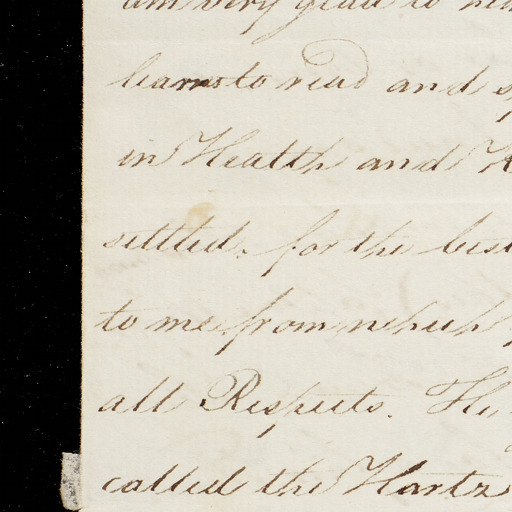 am very glad to hea
learns to read and sp
in Health and H
settled. for the best
to me. from which
all Respects. The
called the Hartz